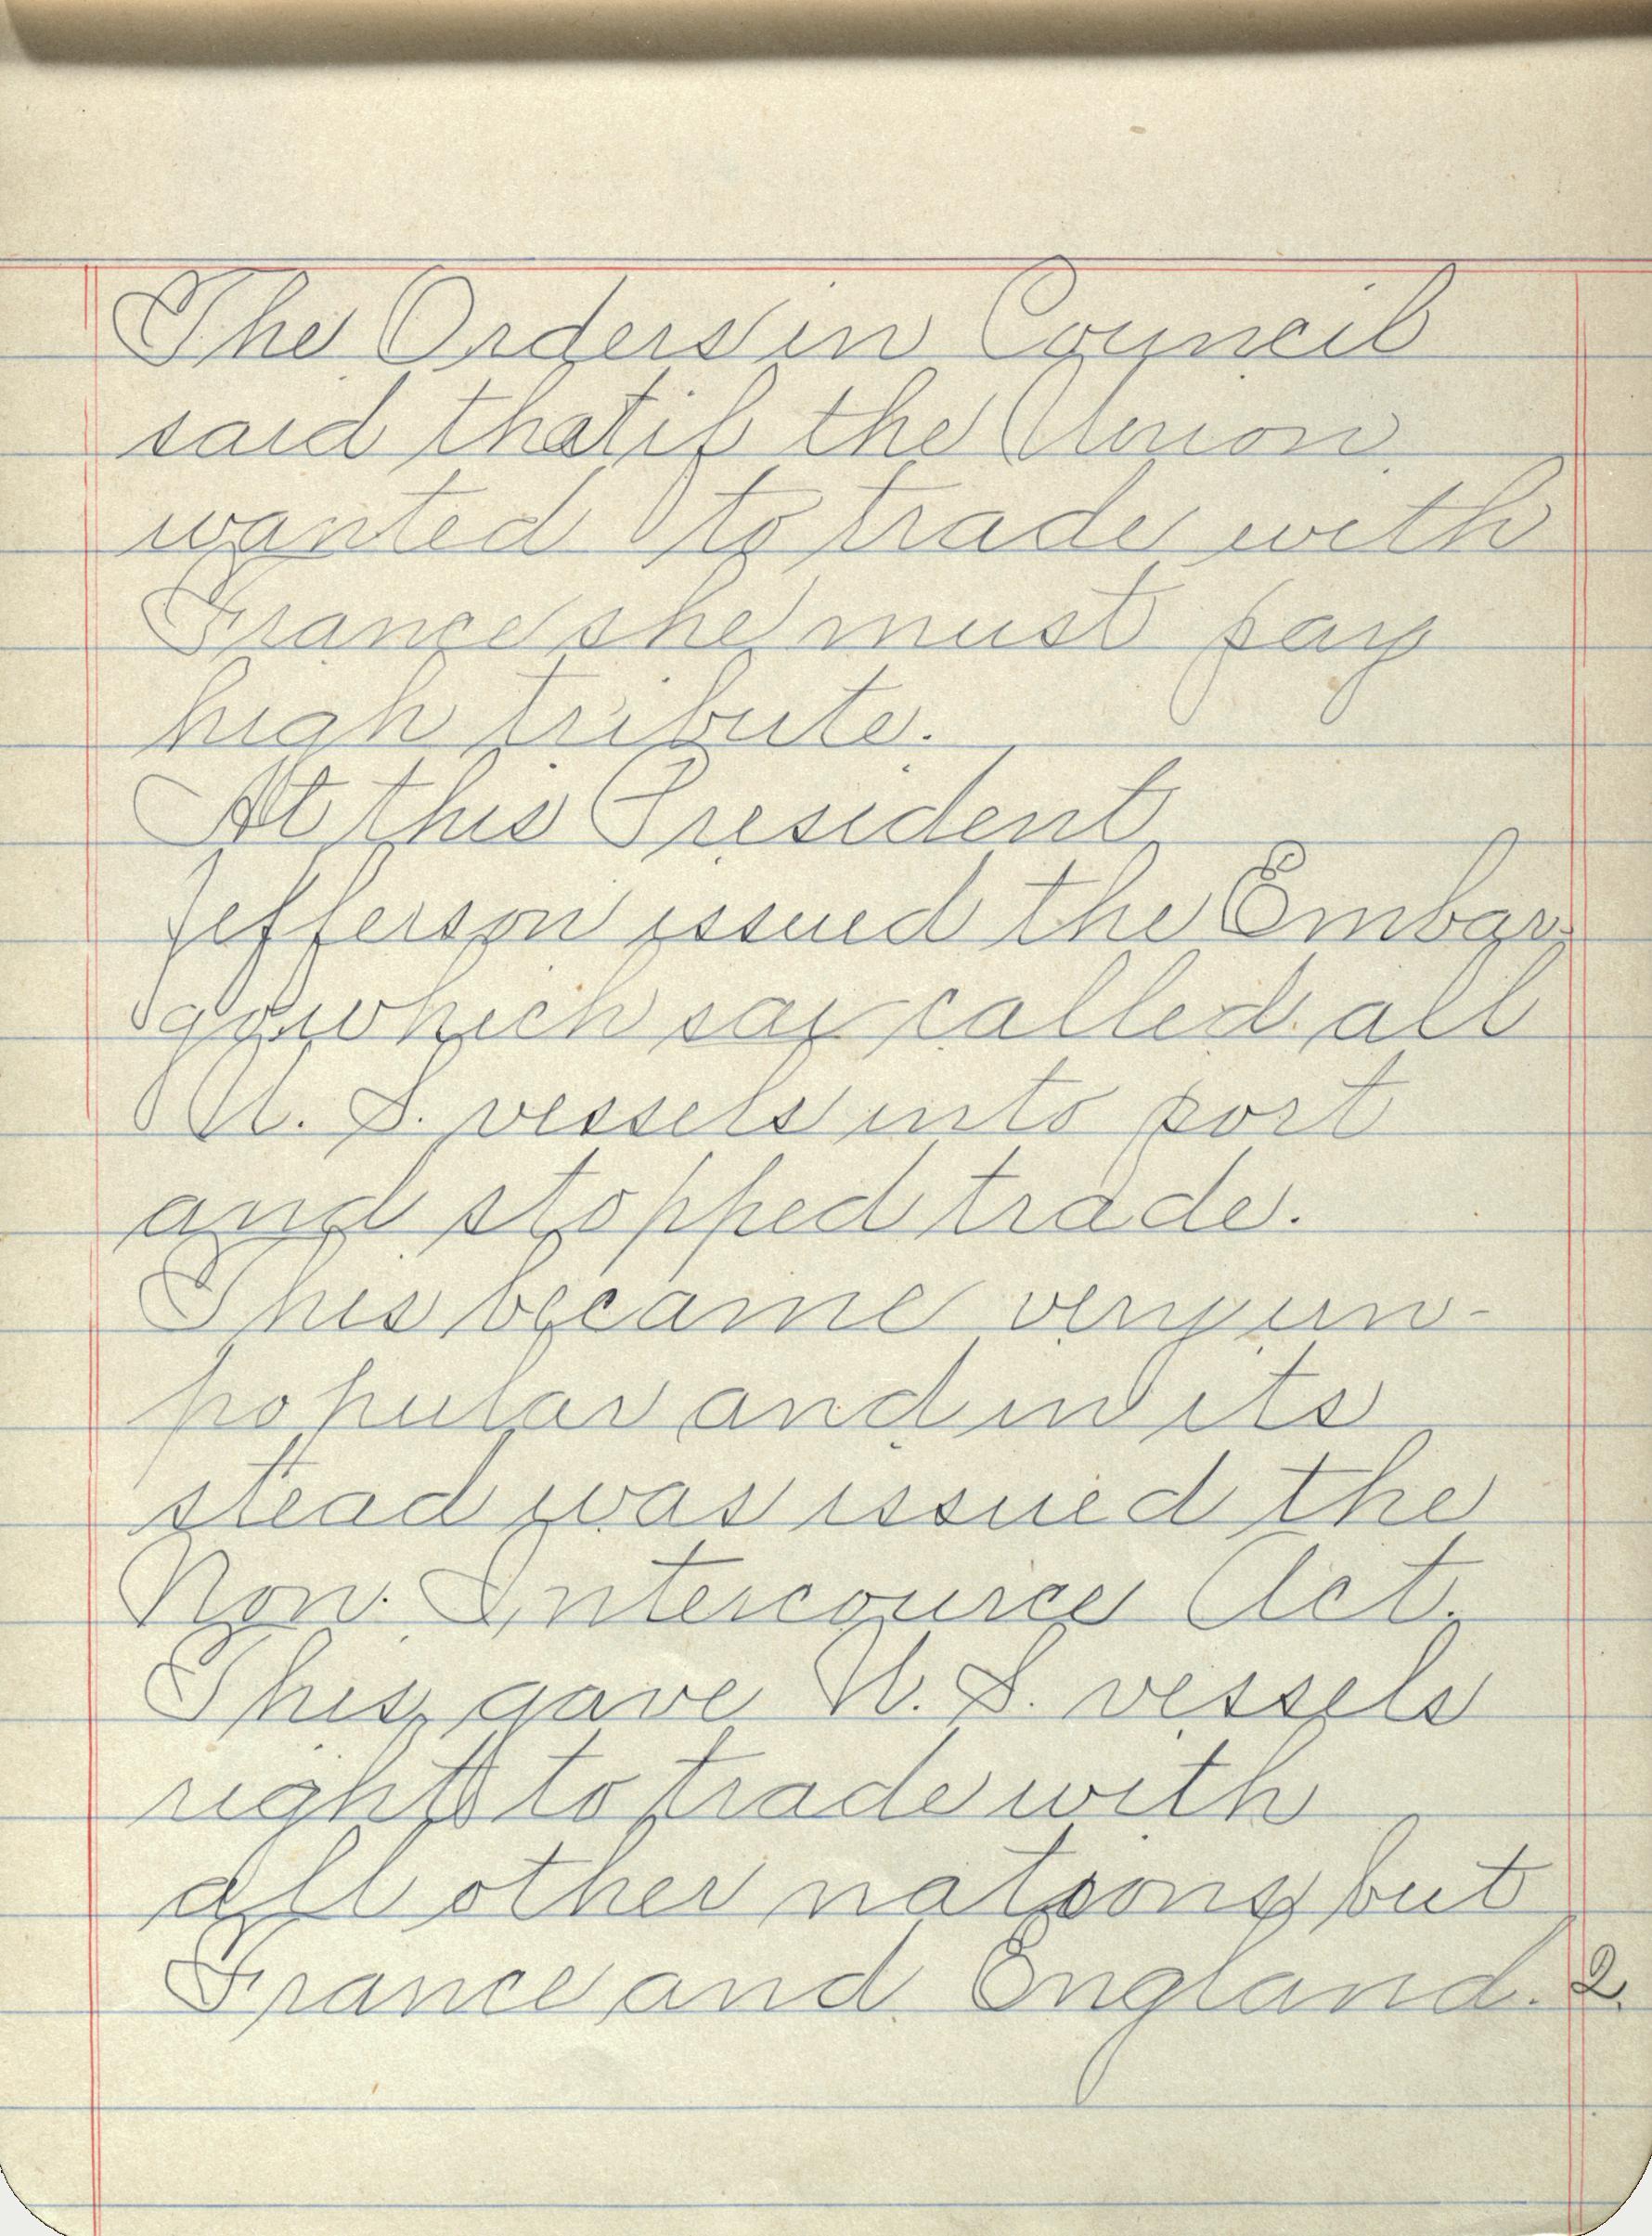 The Orders in Council
said that if the Union
wanted to trade with
France she must pay
high tribute.
At this President
Jefferson issued the Embar-
go which say called all
U. S. vessels into port
and stopped trade.
This became very un-
popular and in its
stead was issued the
Non. Intercource Act.
This gave U. S. vessels
right to trade with
all other nations but
France and England. 2.